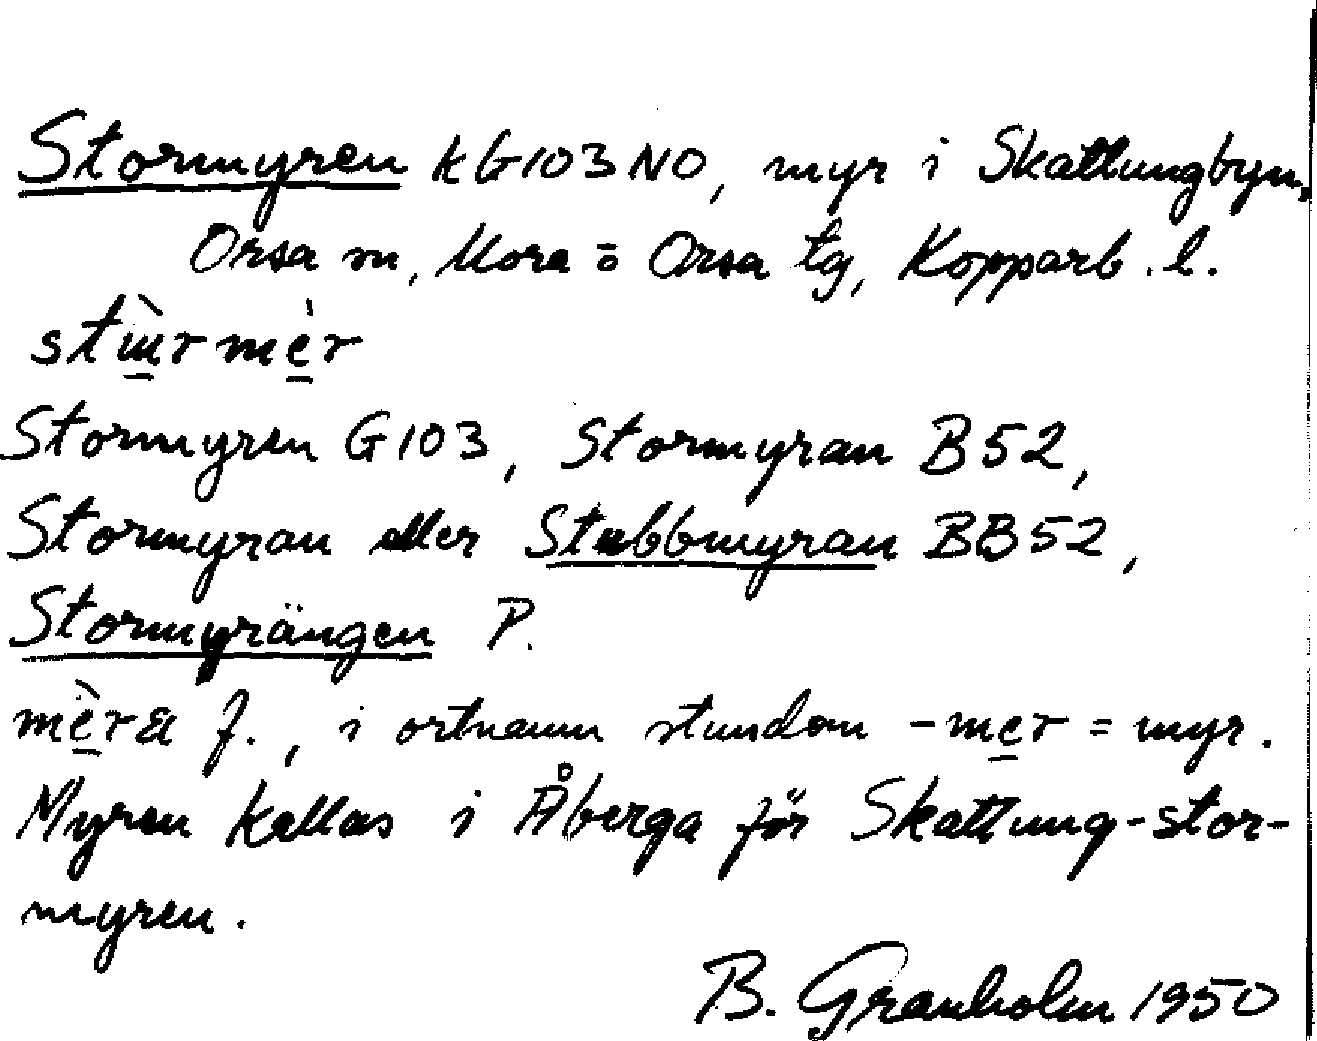 Stormyren KG103NO, myr i Skattungbyn,
Orsa sn, Mora o Orsa tg, Kopparb. l.
Stormyren G103, Stormyran B52,
Stormyran eller Stubbmyran BB52,
Stormyrängen P.
f., i ortnamn stundom -mer = myr.
Myren kallas i Åberga för Skattung-stor-
myren.
B. Granholm 1950